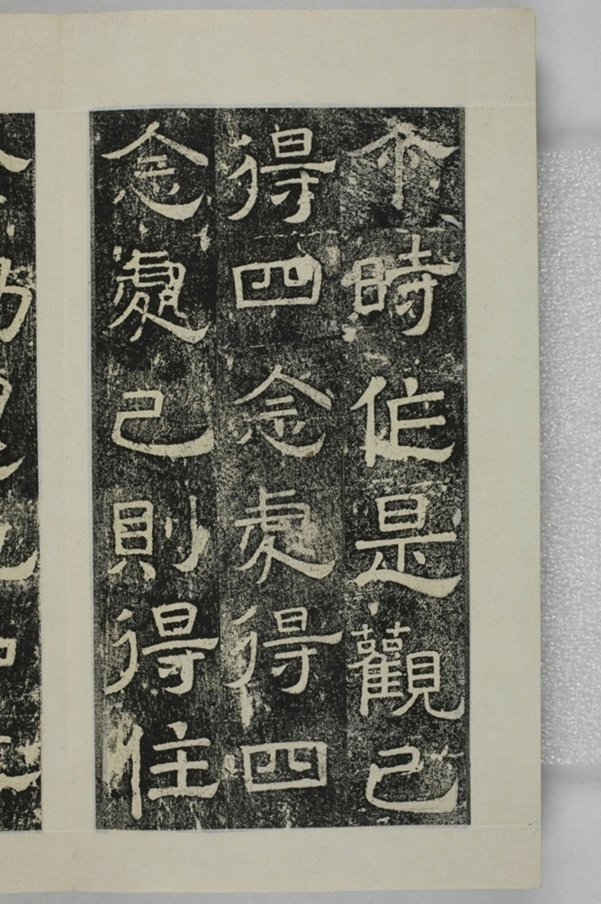 尒時作是觀已
得四念處得四
念處已則得住